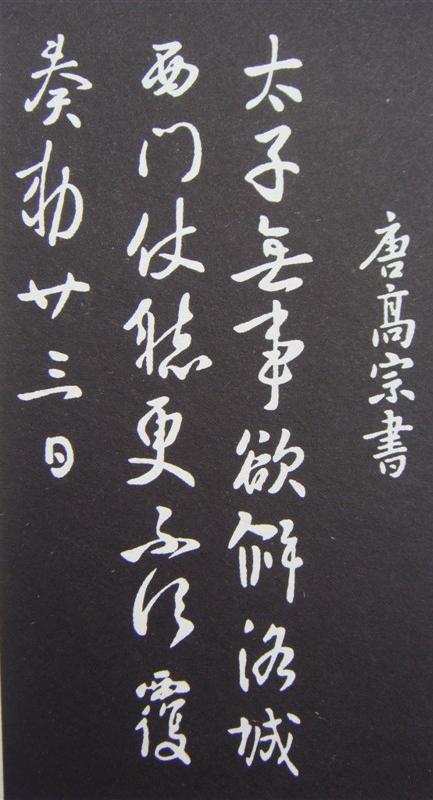 唐髙宗書
太子無事欲解洛城
西門仗聽更不須覆
奏勅廿三日